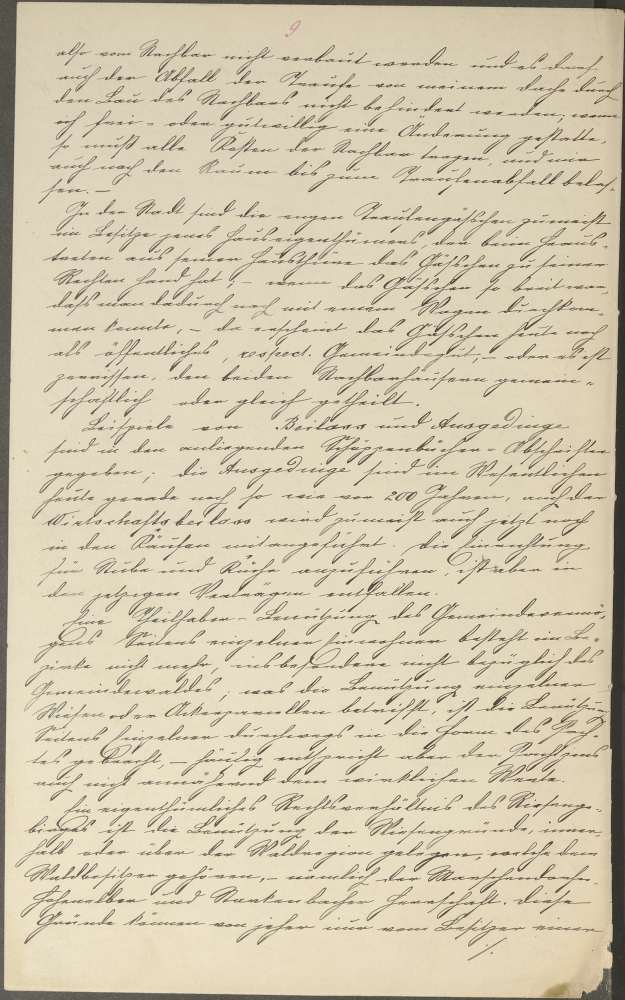 9
also vom Nachbar nicht verbaut werden und es darf
auch der Abfall der Traufe von meinem Dache durch
den Bau des Nachbars nicht behindert werden; wenn
ich frei- oder gutwillig eine Änderung gestatte,
so muß alle Kosten der Nachbar tragen, und mir
auch noch den Raum bis zum Traufenabfall belas-
sen. —
In der Stadt sind die engen Traufengässchen zumeist
im Besitze jenes Hauseigenthümers, der beim Heraus-
treten aus seiner Hausthüre das Gässchen zu seiner
Rechten Hand hat; – wenn das Gässchen so breit war,
dass man dadurch noch mit einem Wagen durchkom-
men konnte, – da erscheint das Gässchen heute noch
als öffentliches, respect. Gemeindegut, – oder es ist
zerrissen, den beiden Nachbarhäusern gemein-
schaftlich oder gleich getheilt.
Beispiele von Beilass und Ausgedinge
sind in den anliegenden Schöppenbücher-Abschriften
gegeben; die Ausgedinge sind im Wesentlichen
heute gerade noch so wie vor 200 Jahren, auch der
Wirtschaftsbeilass wird zumeist auch jetzt noch
in den Käufen mitangeführt. Die Einrichtung
für Stube und Küche anzuführen, ist aber in
den jetzigen Verträgen entfallen.
Eine Theilhaber-Benützung des Gemeindevermö-
gens Seitens einzelner Einwohner besteht im Be-
zirke nicht mehr, insbesondere nicht bezüglich des
Gemeindewaldes; was die Benützung einzelner
Wiesen oder Ackerparzellen betrifft, ist die Benützung
Seitens Einzelner durchwegs in die Form des Pach-
tes gebracht, – häufig entspricht aber der Pachtzins
auch nicht annähernd dem wirklichen Werte.
Ein eigenthümliches Rechtsverhältnis des Riesenge-
birges ist die Benützung der Wiesengründe, inner-
halb oder über der Waldregion gelegen, welche dem
Waldbesitzer gehören, – nämlich der Marschendorfer-
Hohenelber und Starkenbacher Herrschaft. Diese
Gründe können von jeher nur vom Besitzer einer
./.